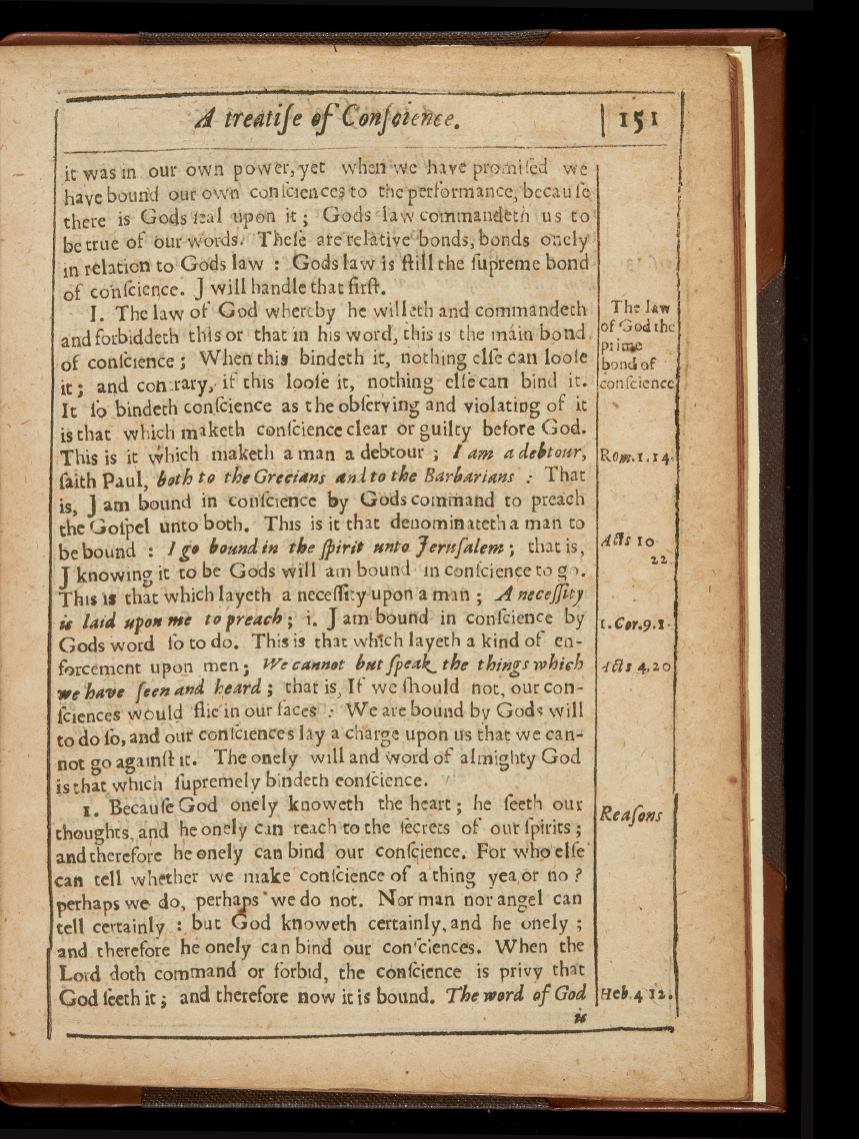 A treatiſe of Conſcience.
151
it was in our own power, yet when we have promiſed we
have bound our own conſciences to the performance, becauſe
there is Gods ſeal upon it ; Gods law commandeth us to
be true of our words. Theſe are relative bonds, bonds onely
in relation to Gods law : Gods law is ſtill the ſupreme bond
of conſcience. J will handle that firſt.
I. The law of God whereby he willeth and commandeth
and forbiddeth this or that in his word, this is the main bond
of conſcience ; When this bindeth it, nothing elſe can looſe
it ; and contrary, if this looſe it, nothing elſe can bind it.
It ſo bindeth conſcience as the obſerving and violating of it
is that which maketh conſcience clear or guilty before God.
This is it which maketh a man a debtour ; I am a debtour,
ſaith Paul, both to the Grecians and to the Barbarians : That
is, J am bound in conſcience by Gods command to preach
the Goſpel unto both. This is it that denominateth a man to
be bound : I go bound in the ſpirit unto Jeruſalem ; that is,
J knowing it to be Gods will am bound in conſcience to go.
This is that which layeth a neceſſity upon a man ; A neceſſity
is laid upon me to preach ; i. J am bound in conſcience by
Gods word ſo to do. This is that which layeth a kind of en-
forcement upon men ; We cannot but ſpeak the things which
we have ſeen and heard ; that is, If we ſhould not, our con-
ſciences would flie in our faces : We are bound by Gods will
to do ſo, and our conſciences lay a charge upon us that we can-
not go againſt it. The onely will and word of almighty God
is that which ſupremely bindeth conſcience.
1. Becauſe God onely knoweth the heart ; he ſeeth our
thoughts, and he onely can reach to the ſecrets of our ſpirits ;
and therefore he onely can bind our conſcience. For who elſe
can tell whether we make conſcience of a thing yea or no ?
perhaps we do, perhaps we do not. Nor man nor angel can
tell certainly : but God knoweth certainly, and he onely ;
and therefore he onely can bind our conſciences. When the
Lord doth command or forbid, the conſcience is privy that
God ſeeth it ; and therefore now it is bound. The word of God
is
The law
of God the
prime
bond of
conſcience
Rom. 1. 14.
Acts 10
22.
1. Cor. 9. 1.
Acts 4. 20
Reaſons
Heb. 4 12.